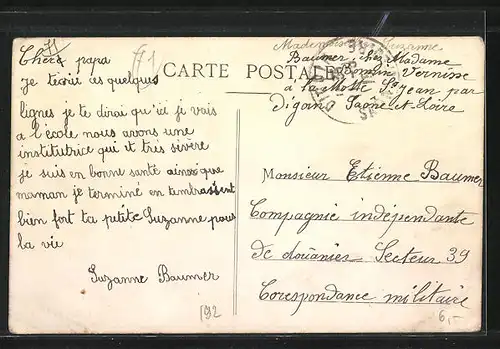 Chere papa
Je técrit ces quelques
lignes je te dirai qu'ici je vais
a l'école nous avons une
institutrice qui et tres sivère
je suis en bonne santé ainsi que
maman je terminé en tembrassent
bien fort ta petite Suzanne pour
la vie
Suzanne Baumer
CARTE POSTALE
Mademoiselle Suzanne
Baumer chez Madame
Vernisse
à la Motte St Jean par
Digoin Saone-et-Loire
Monsieur Etienne Baumer
Compagnie indépendante
de douaniers Secteur 39
Corespondance militaire
192
6,-